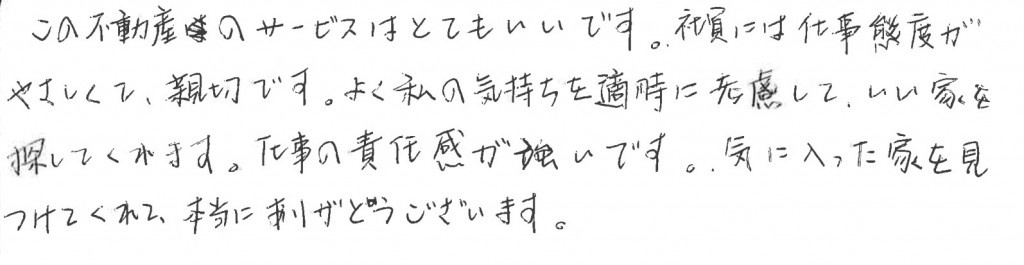 この不動産のサービスはとてもいいです。社員には仕事態度が
やさしくて、親切です。よく私の気持ちを適時に考慮して、いい家を
探してくれます。仕事の責任感が強いです。気に入った家を見
つけてくれて、本当にありがとうございます。